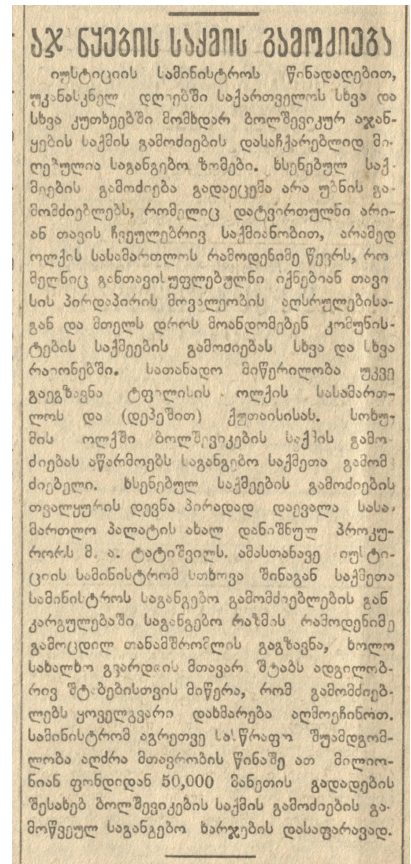 აჯანყების საქმის გამოძიება
იუსტიციის სამინისტროს წინადადებით,
უკანასკნელ დღეებში საქართველოს სხვა და
სხვა კუთხეებში მომხდარ ბოლშევიკურ აჯან-
ყების საქმის გამოძიების დასაჩქარებლიდ მი-
ღებულია საგანგებო ზომები. ხსენებულ საქ-
მიების გამოძიება გადაეცემა არა უბნის გა-
მომძიებლებს, რომელიც დატვირთულნი არი-
ან თავის ჩვეულებრივ საქმიანობით, არამედ
ოლქის სასამართლოს რამოდენიმე წევრს, რო
მელნიც განთავისუფლებულნი იქნებიან თავი
სის პირდაპირის მოვალეობის აღსრულებისა-
გან და მთელს დროს მოანდომებენ კომუნის-
ტების საქმეების გამოძიებას სხვა და სხვა
რაიონებში. სათანადო მიწერილობა უკვე
გაეგზავნა ტფილისის ოლქის სასამართ-
ლოს და (დეპეშით) ქუთაისისას. სოხუ-
მის ოლქში ბოლშევიკების საქმის გამო-
ძიებას აწარმოებს საგანგებო საქმეთა გამომ
ძიებელი. ხსენებულ საქმეების გამოძიების
თვალყურის დევნა პირადად დაევალა სასა-
მართლო პალატის ახალ დანიშნულ პროკუ-
რორს მ. ა. ტატიშვილს. ამასთანავე იუსტი-
ციის სამინისტრომ სთხოვა შინაგან საქმეთა
სამინისტროს საგანგებო გამომძიებლების გან
კარგულებაში საგანგებო რაზმის რამოდენიმე
გამოცდილ თანამშრომლის გაგზავნა, ხოლო
სახალხო გვარდიის მთავარ შტაბს ადგილობ-
რივ შტაბებისთვის მიწერა, რომ გამომძიებ-
ლებს ყოველგვარი დახმარება აღმოეჩინოთ.
სამინისტრომ აგრეთვე სასწრაფო შუამდგომ-
ლობა აღძრა მთავრობის წინაშე ათ მილიო-
ნიან ფონდიდან 50,000 მანეთის გადადების
შესახებ ბოლშევიკების საქმის გამოძიების გა-
მოწვეულ საგანგებო ხარჯების დასაფარავად.